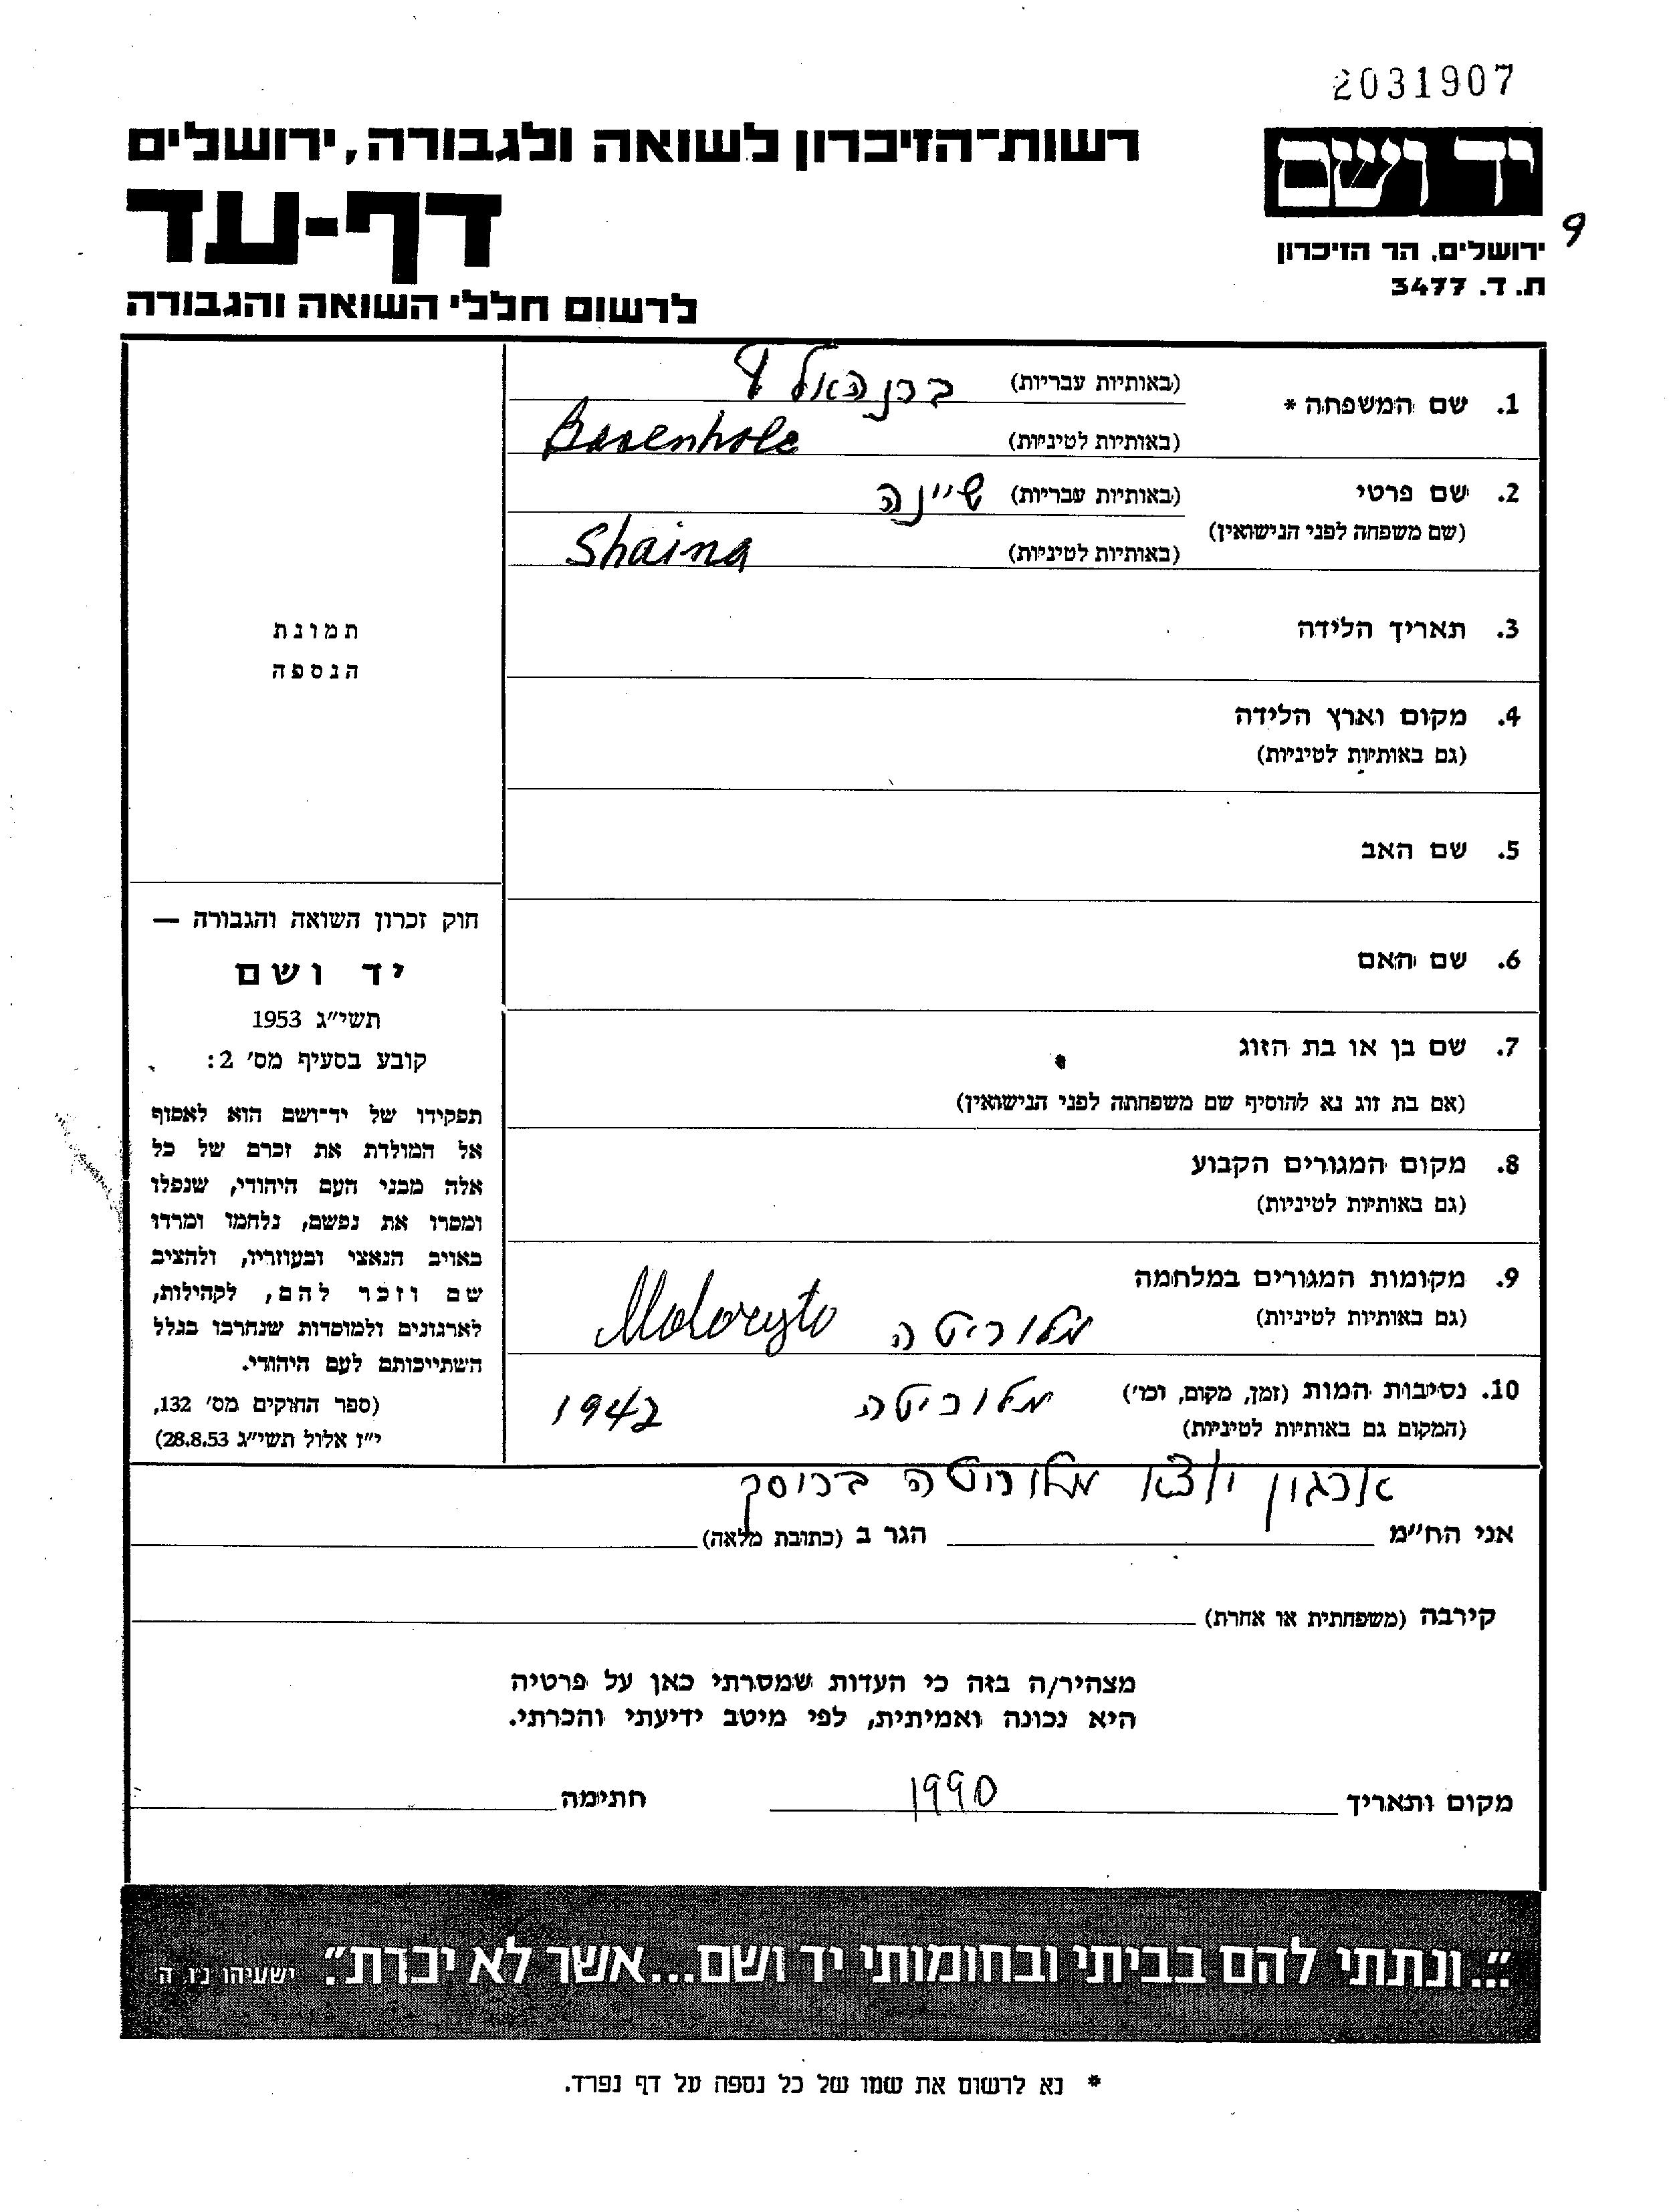 2031907
רשות־הזיכרון לשואה ולגבורה, ירושלים
דף-עד
לרשום חללי השואה והגבורה
יד ושם
ירושלים, הר הזיכרון
ת. ד. 3477
9
1. שם המשפחה *
(באותיות עבריות)
(באותיות לטיניות)
2. שם פרטי (באותיות עבריות) שיינה
(שם משפחה לפני הנישואין)
(באותיות לטיניות) Shaina
3. תאריך הלידה
4. מקום וארץ הלידה
(גם באותיות לטיניות)
5. שם האב
6. שם האם
7. שם בן או בת הזוג
(אם בת זוג נא להוסיף שם משפחתה לפני הנישואין)
8. מקום המגורים הקבוע
(גם באותיות לטיניות)
9. מקומות המגורים במלחמה
(גם באותיות לטיניות) מלוריטה Maloryto
10. נסיבות המות (זמן, מקום, וכו') מלוריטה 1942
(המקום גם באותיות לטיניות)
תמונת
הנספה
חוק זכרון השואה והגבורה —
יד ושם
תשי"ג 1953
קובע בסעיף מס' 2:
תפקידו של יד־ושם הוא לאסוף
אל המולדת את זכרם של כל
אלה מבני העם היהודי, שנפלו
ומסרו את נפשם, נלחמו ומרדו
באויב הנאצי ובעוזריו, ולהציב
שם וזכר להם, לקהילות,
לארגונים ולמוסדות שנחרבו בגלל
השתייכותם לעם היהודי.
(ספר החוקים מס' 132,
י"ז אלול תשי"ג 28.8.53)
ארגון יוצאי מלוריטה
אני הח"מ הגר ב (כתובת מלאה)
קירבה (משפחתית או אחרת)
מצהיר/ה בזה כי העדות שמסרתי כאן על פרטיה
היא נכונה ואמיתית, לפי מיטב ידיעתי והכרתי.
מקום ותאריך 1990 חתימה
"...ונתתי להם בביתי ובחומותי יד ושם...אשר לא יכרת". ישעיהו נו ה
* נא לרשום את שמו של כל נספה על דף נפרד.